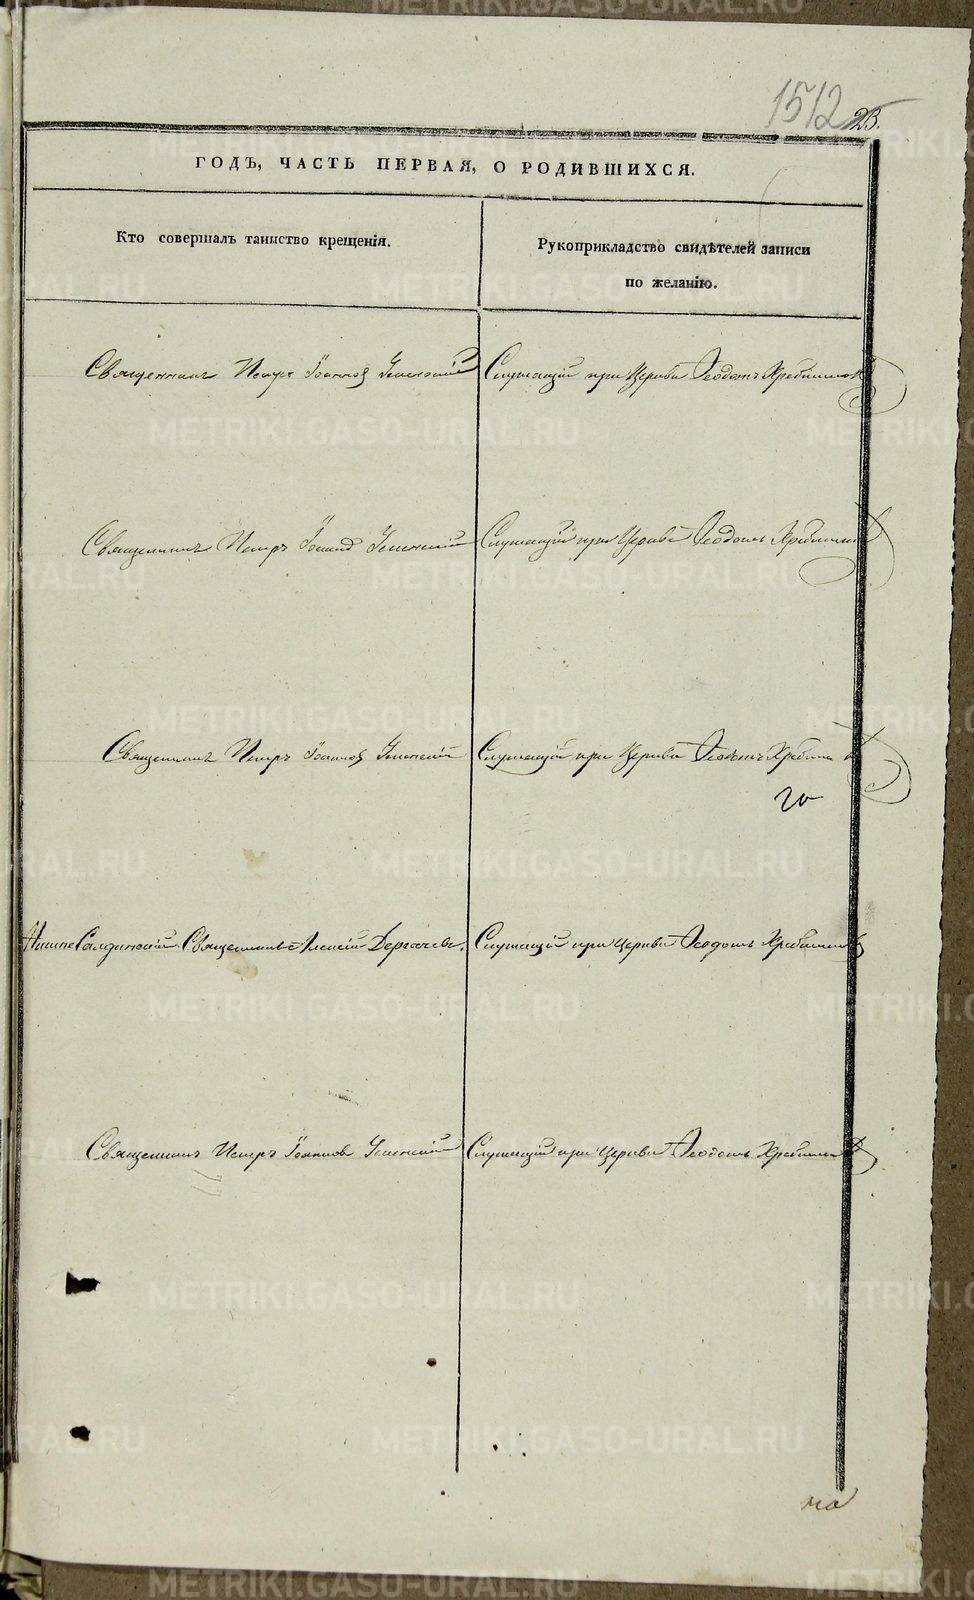 1512 23.
ГОДЪ, ЧАСТЬ ПЕРВАЯ, О РОДИВШИХСЯ.
Кто совершалъ таинство крещенія.
Рукоприкладство свидѣтелей записи
по желанію.
Священникъ Петръ Іоанновъ Успенскій
Служащій при Церкви Ѳеодотъ
Священникъ Петръ Успенскій
Служащій при Церкви Ѳеодотъ
Священникъ Петръ Іоанновъ Успенскій
Служащій при Церкви Ѳеодотъ
Нижнесалдинскій Священникъ Алексій Дергачевъ.
Служащій при Церкви Ѳеодотъ
Священникъ Петръ Іоанновъ Успенскій
Служащій при Церкви Ѳеодотъ
METRIKI.GASO-URAL.RU